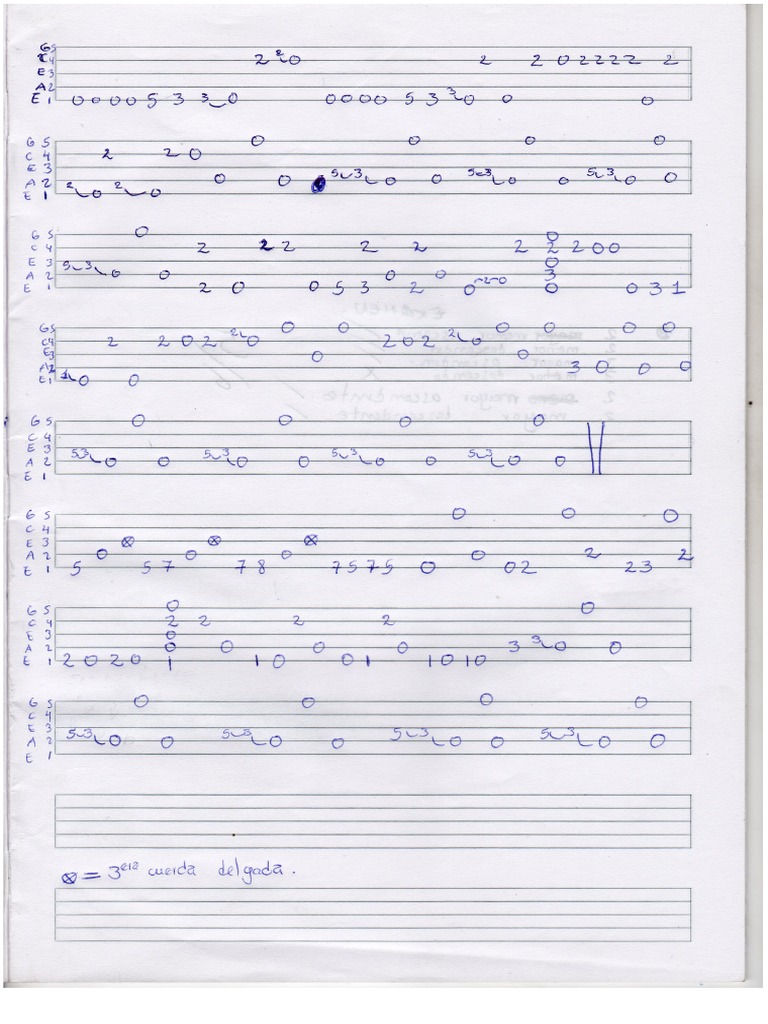 G5 2 2 0 2 2 0 2 2 2 2 2
C4
E3
A2
E1 0 0 0 0 5 3 3 0 0 0 0 0 5 3 3 0 0 0
G 5 0 0 0 0
C 4 2 2 0
E 3
A 2 0 0 5 3 0 0 5 3 0 0 5 3 0 0
E 1 2 0 2 0
G 5 0 0
C 4 2 2 2 2 2 2 2 2 0 0
E 3 0
A 2 5 3 0 0 0 0 3
E 1 2 0 0 5 3 2 0 2 0 0 0 3 1
G5 0 0 0 0 0
C4 2 2 0 2 2 0 2 0 2 2 0
E3 0 0
A2 3 0 0 0
E1 1 0 0
G 5 0 0 0 0
C 4
E 3
A 2 5 3 0 0 5 3 0 0 5 3 0 0 5 3 0 0
E 1
G 5 0 0 0
C 4
E 3 ⊗ ⊗ ⊗
A 2 0 0 0 0 2 2
E 1 5 5 7 7 8 7 5 7 5 0 0 2 2 3
G 5 0 0
C 4 2 2 2 2
E 3 0
A 2 0 0 0 0 3 3 0 0
E 1 2 0 2 0 1 1 0 0 1 1 0 1 0
G 5 0 0 0 0
C 4
E 3
A 2 5 3 0 0 5 3 0 0 5 3 0 0 5 3 0 0
E 1
⊗ = 3era cuerda delgada.